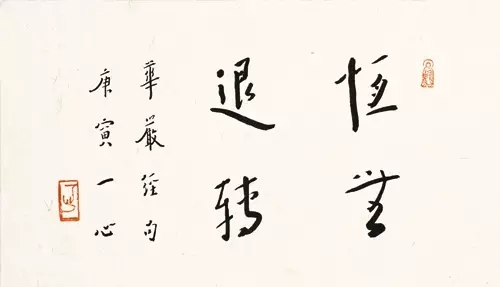 恒無
退转
華嚴经句
庚寅一心